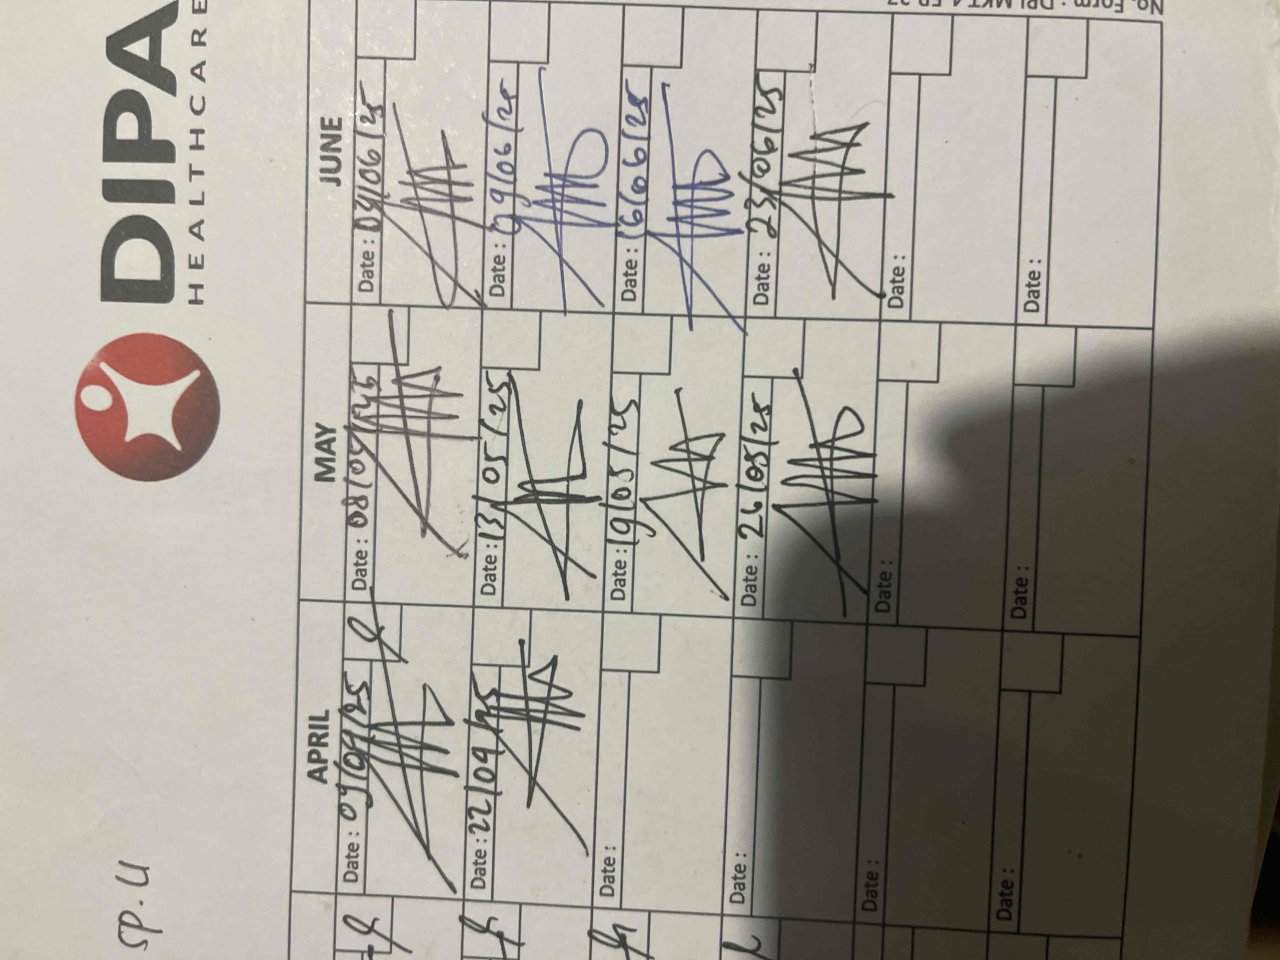 SP.U
DIPA
HEALTHCARE
APRIL MAY JUNE
Date : 09/04/25 Date : 08/05/25 Date : 04/06/25
Date : 22/04/25 Date : 13/05/25 Date : 09/06/25
Date : Date : 19/05/25 Date : 16/06/25
Date : Date : 26/05/25 Date : 23/06/25
Date : Date : Date :
Date : Date : Date :
No. Form :